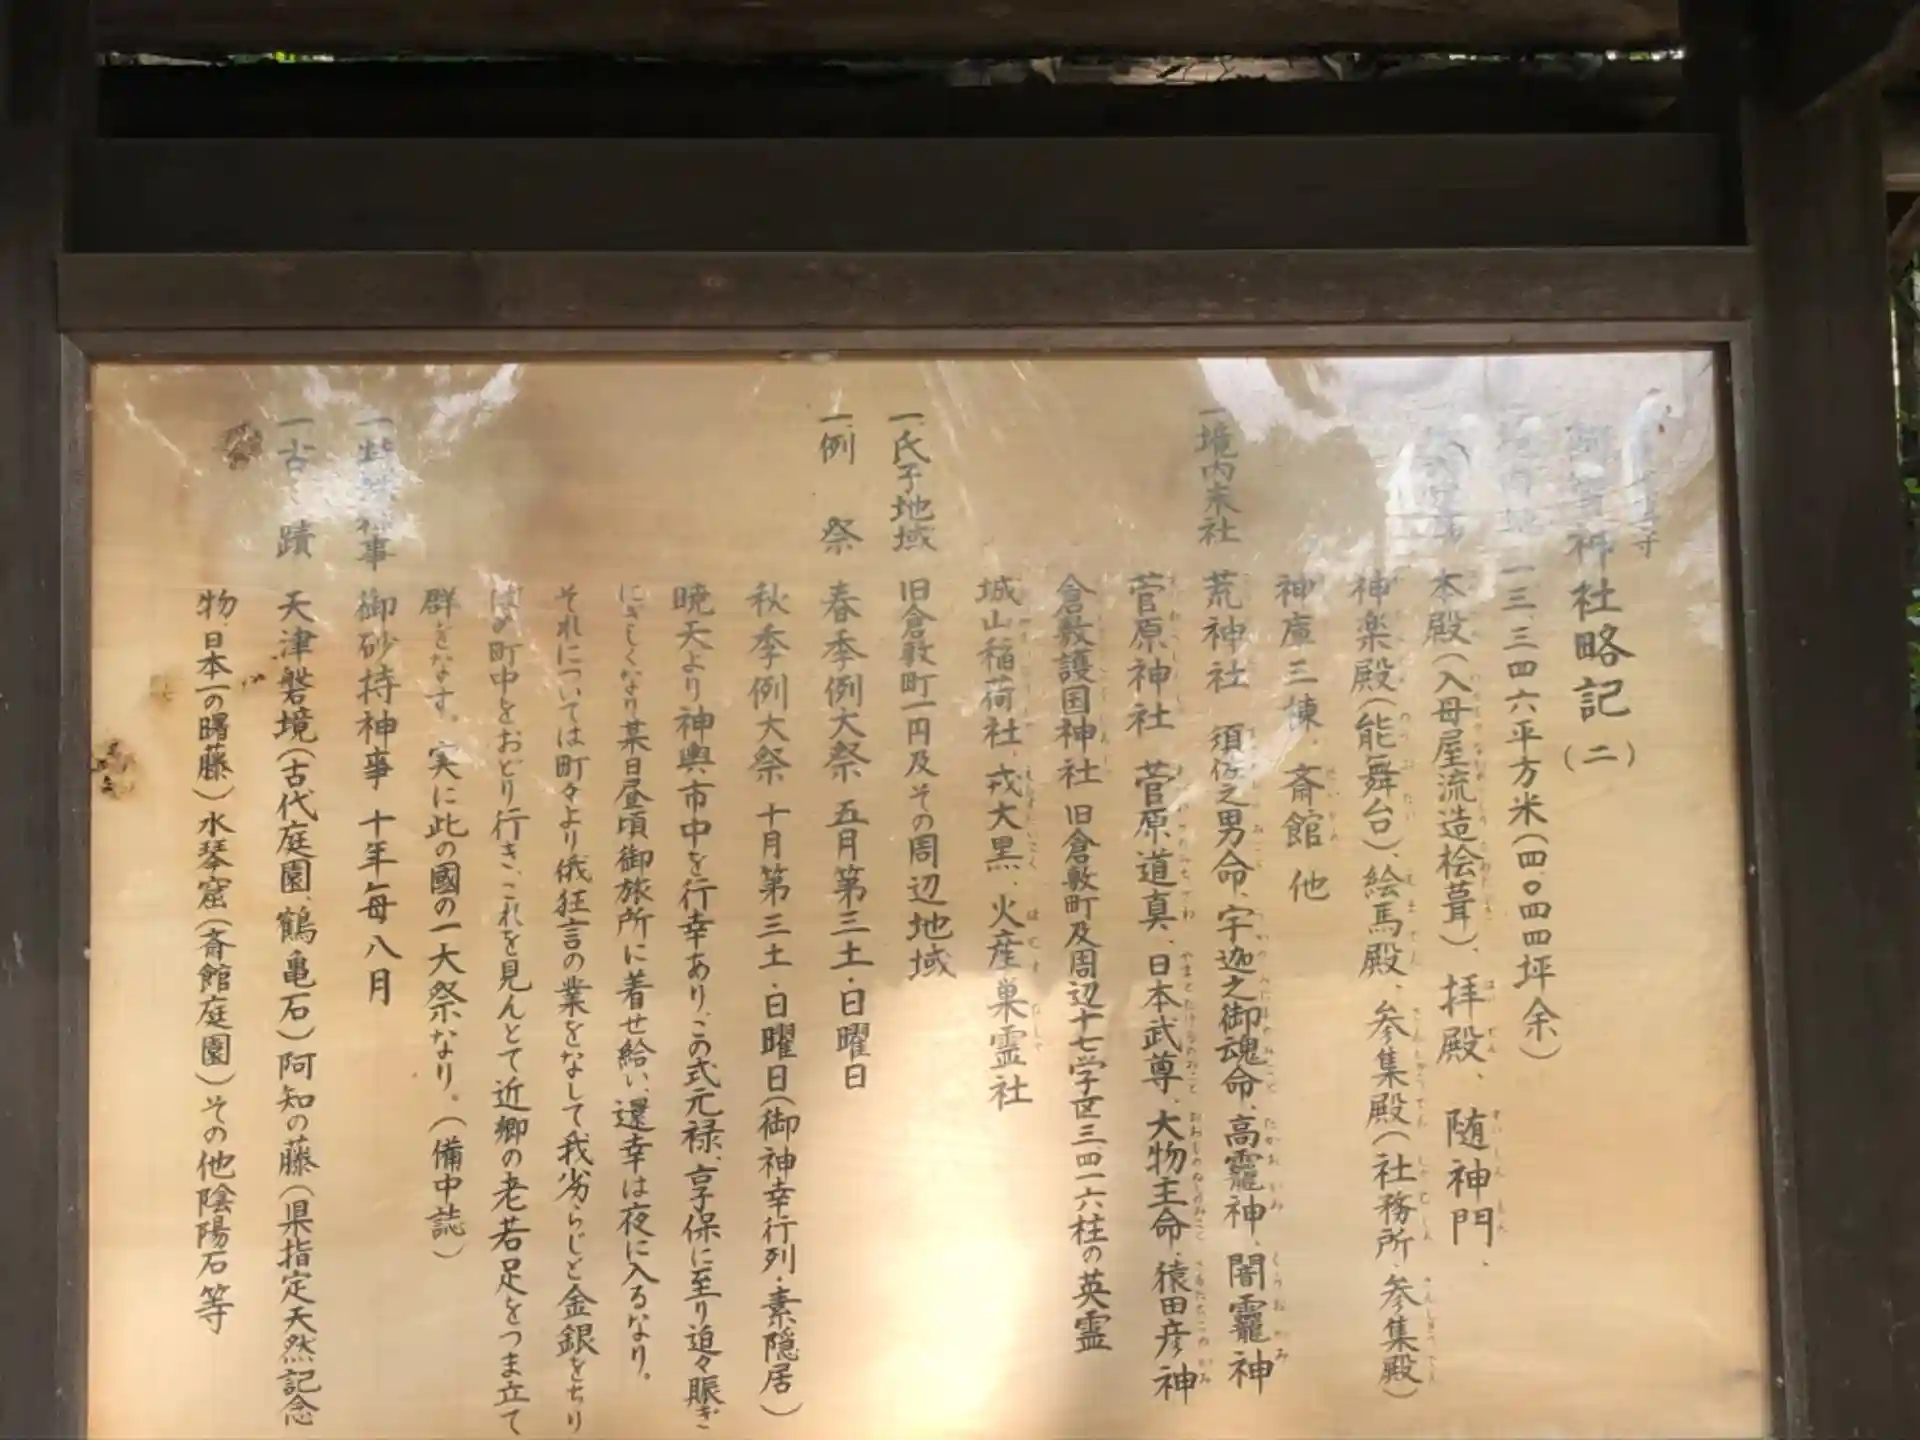 神社略記(二)
一三、三四六平方米(四、〇四四坪余)
本殿(入母屋流造桧葺)、拝殿、随神門、
神楽殿(能舞台)、絵馬殿、参集殿(社務所・参集殿)
神庫三棟、斎館 他
一、境内末社 荒神社 須佐之男命、宇迦之御魂命、高龗神、闇龗神
菅原神社 菅原道真、日本武尊、大物主命、猿田彦神
倉敷護国神社 旧倉敷町及周辺十七学区三、四一六柱の英霊
城山稲荷社、戎大黒、火産巣霊社
一、氏子地域 旧倉敷町一円及その周辺地域
一、例祭 春季例大祭 五月第三土・日曜日
秋季例大祭 十月第三土・日曜日(御神幸行列・素隠居)
暁天より神輿市中を行幸あり、この式元禄、享保に至り追々賑ぎ
にぎしくなり某日昼頃御旅所に着せ給い、還幸は夜に入るなり。
それについては町々より俄狂言の業をなして我劣らじと金銀をちり
ばめ町中をおどり行き、これを見んとて近郷の老若足をつま立て
群をなす。実に此の國の一大祭なり。(備中誌)
神事 御砂持神事 十年毎八月
一、古蹟 天津磐境(古代庭園、鶴亀石)阿知の藤(県指定天然記念
物、日本一の曙藤)水琴窟(斎館庭園)その他陰陽石等